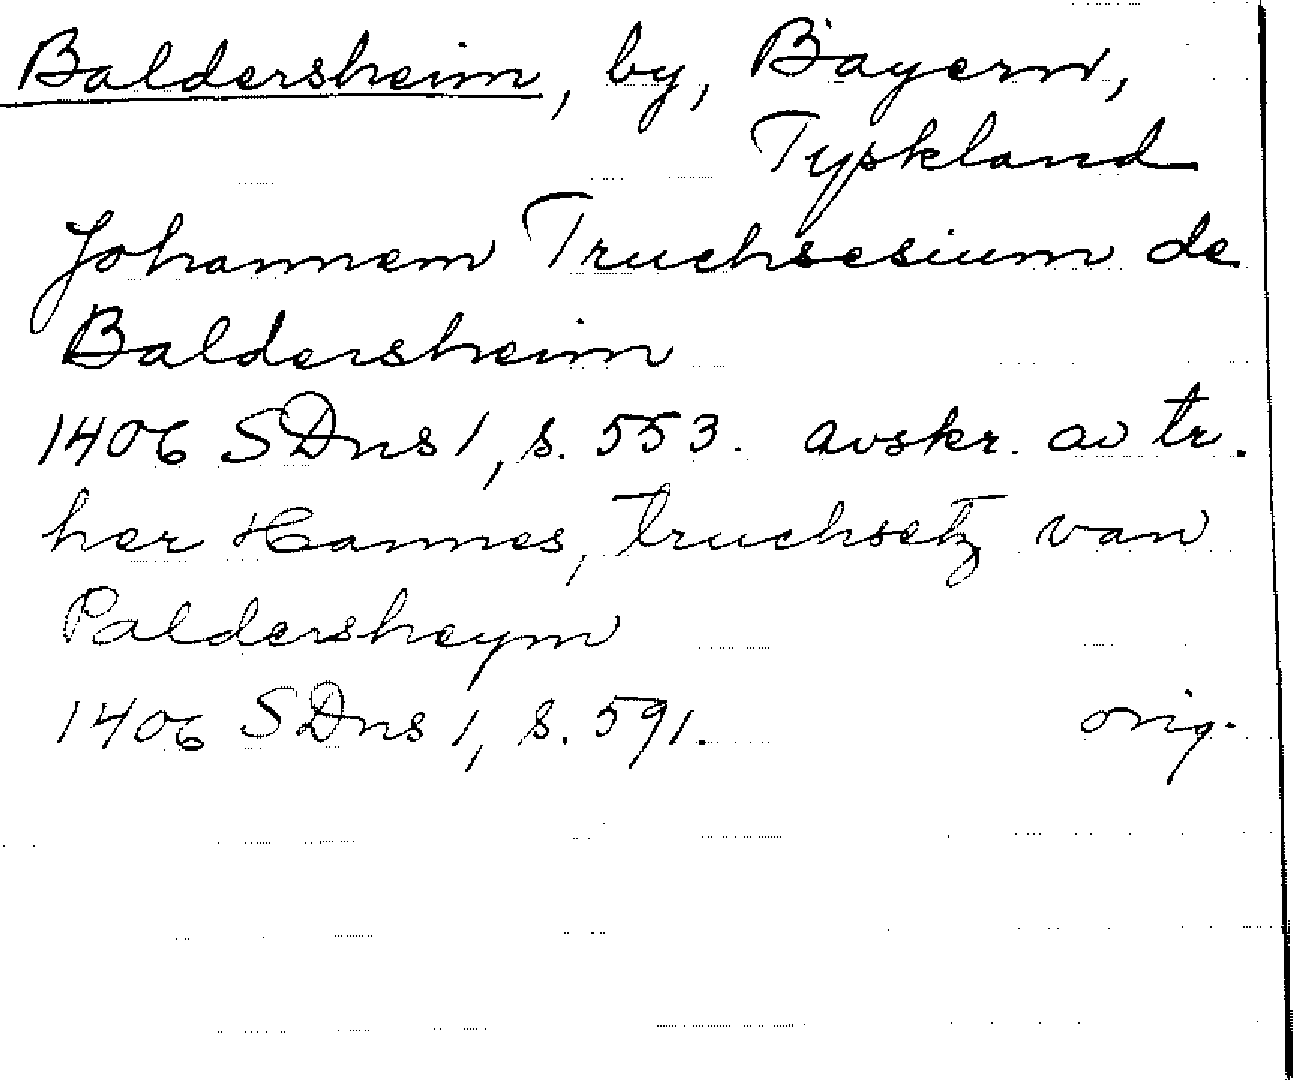 Baldersheim, by, Bayern,
Tyskland
Johannem Truchsesium de
Baldersheim
1406 SDns 1, s. 553. avskr. av tr.
her Hannes, truchsetz van
Paldersheym
1406 SDns 1, s. 591. orig.